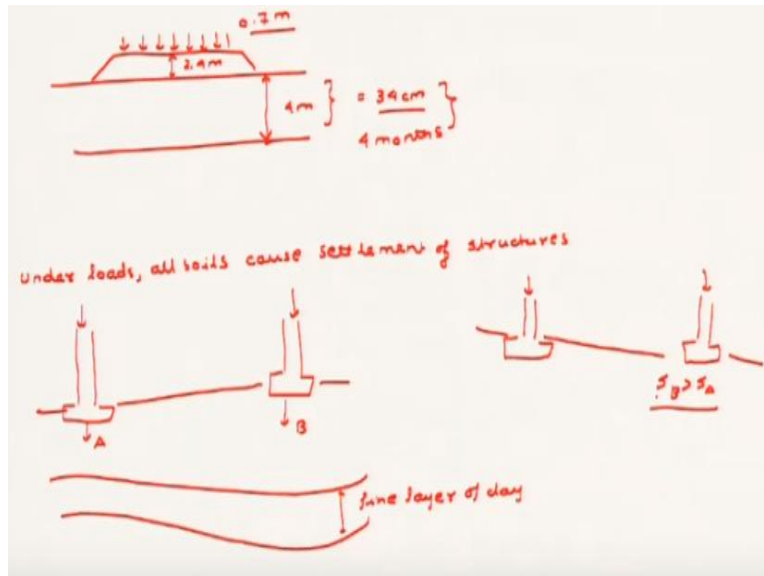 0.7m
2.4m
4m = 34cm
4 months
Under loads, all soils cause settlement of structures
A
B
S_B > S_A
fine layer of clay